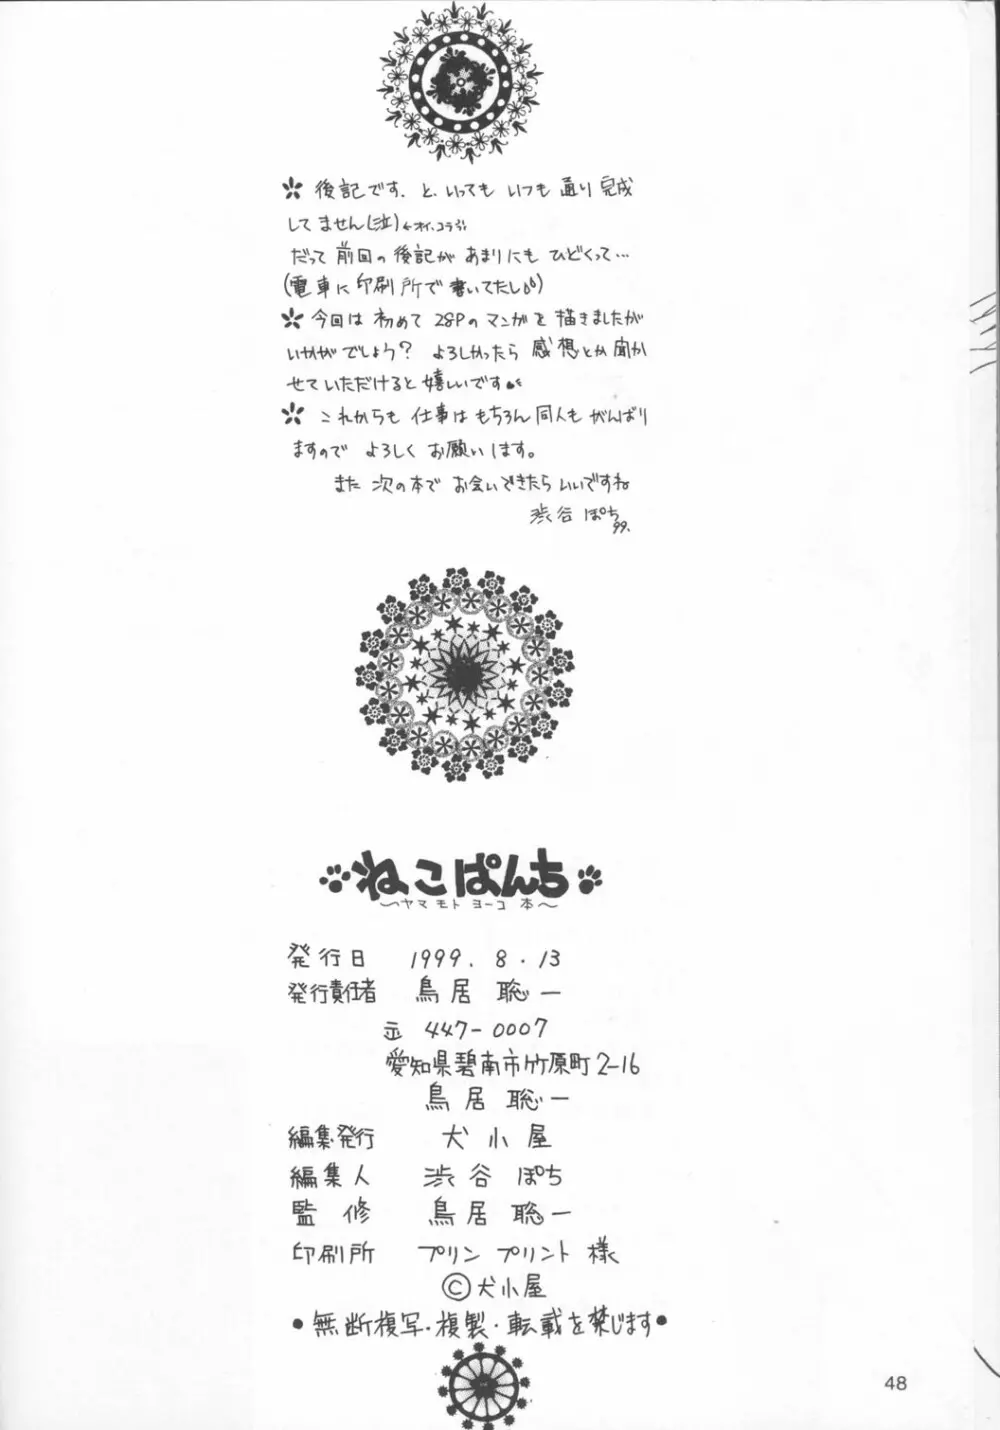 後記です。と、いっても いつも通り完成
してません(泣)←オイ、コラ
だって前回の後記が あまりにも ひどくって…
(電車に印刷所で書いてたし)
今回は 初めて 28Pのマンガを 描きましたが
いかがでしょう? よろしかったら 感想とか聞か
せていただけると 嬉しいです
これからも 仕事はもちろん同人も がんばり
ますので よろしく お願いします。
また 次の本で お会いできたらいいですね
渋谷 ぽち
99.
ねこぱんち
〜ヤマモト ヨーコ 本〜
発行日 1999. 8. 13
発行責任者 鳥居 聡一
〒 447-0007
愛知県碧南市竹原町2-16
鳥居 聡一
編集発行 犬小屋
編集人 渋谷 ぽち
監修 鳥居 聡一
印刷所 プリンプリント様
©犬小屋
●無断複写・複製・転載を禁じます●
48